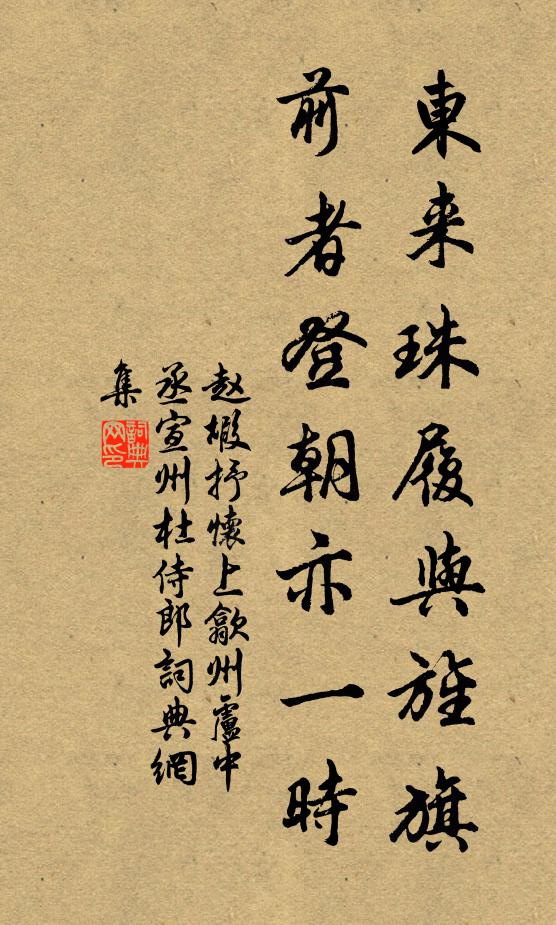 東来珠履與旌旗
前者登朝亦一時
赵嘏抒懷上歙州盧中
丞宣州杜侍郎詞典網
集
詞典网印